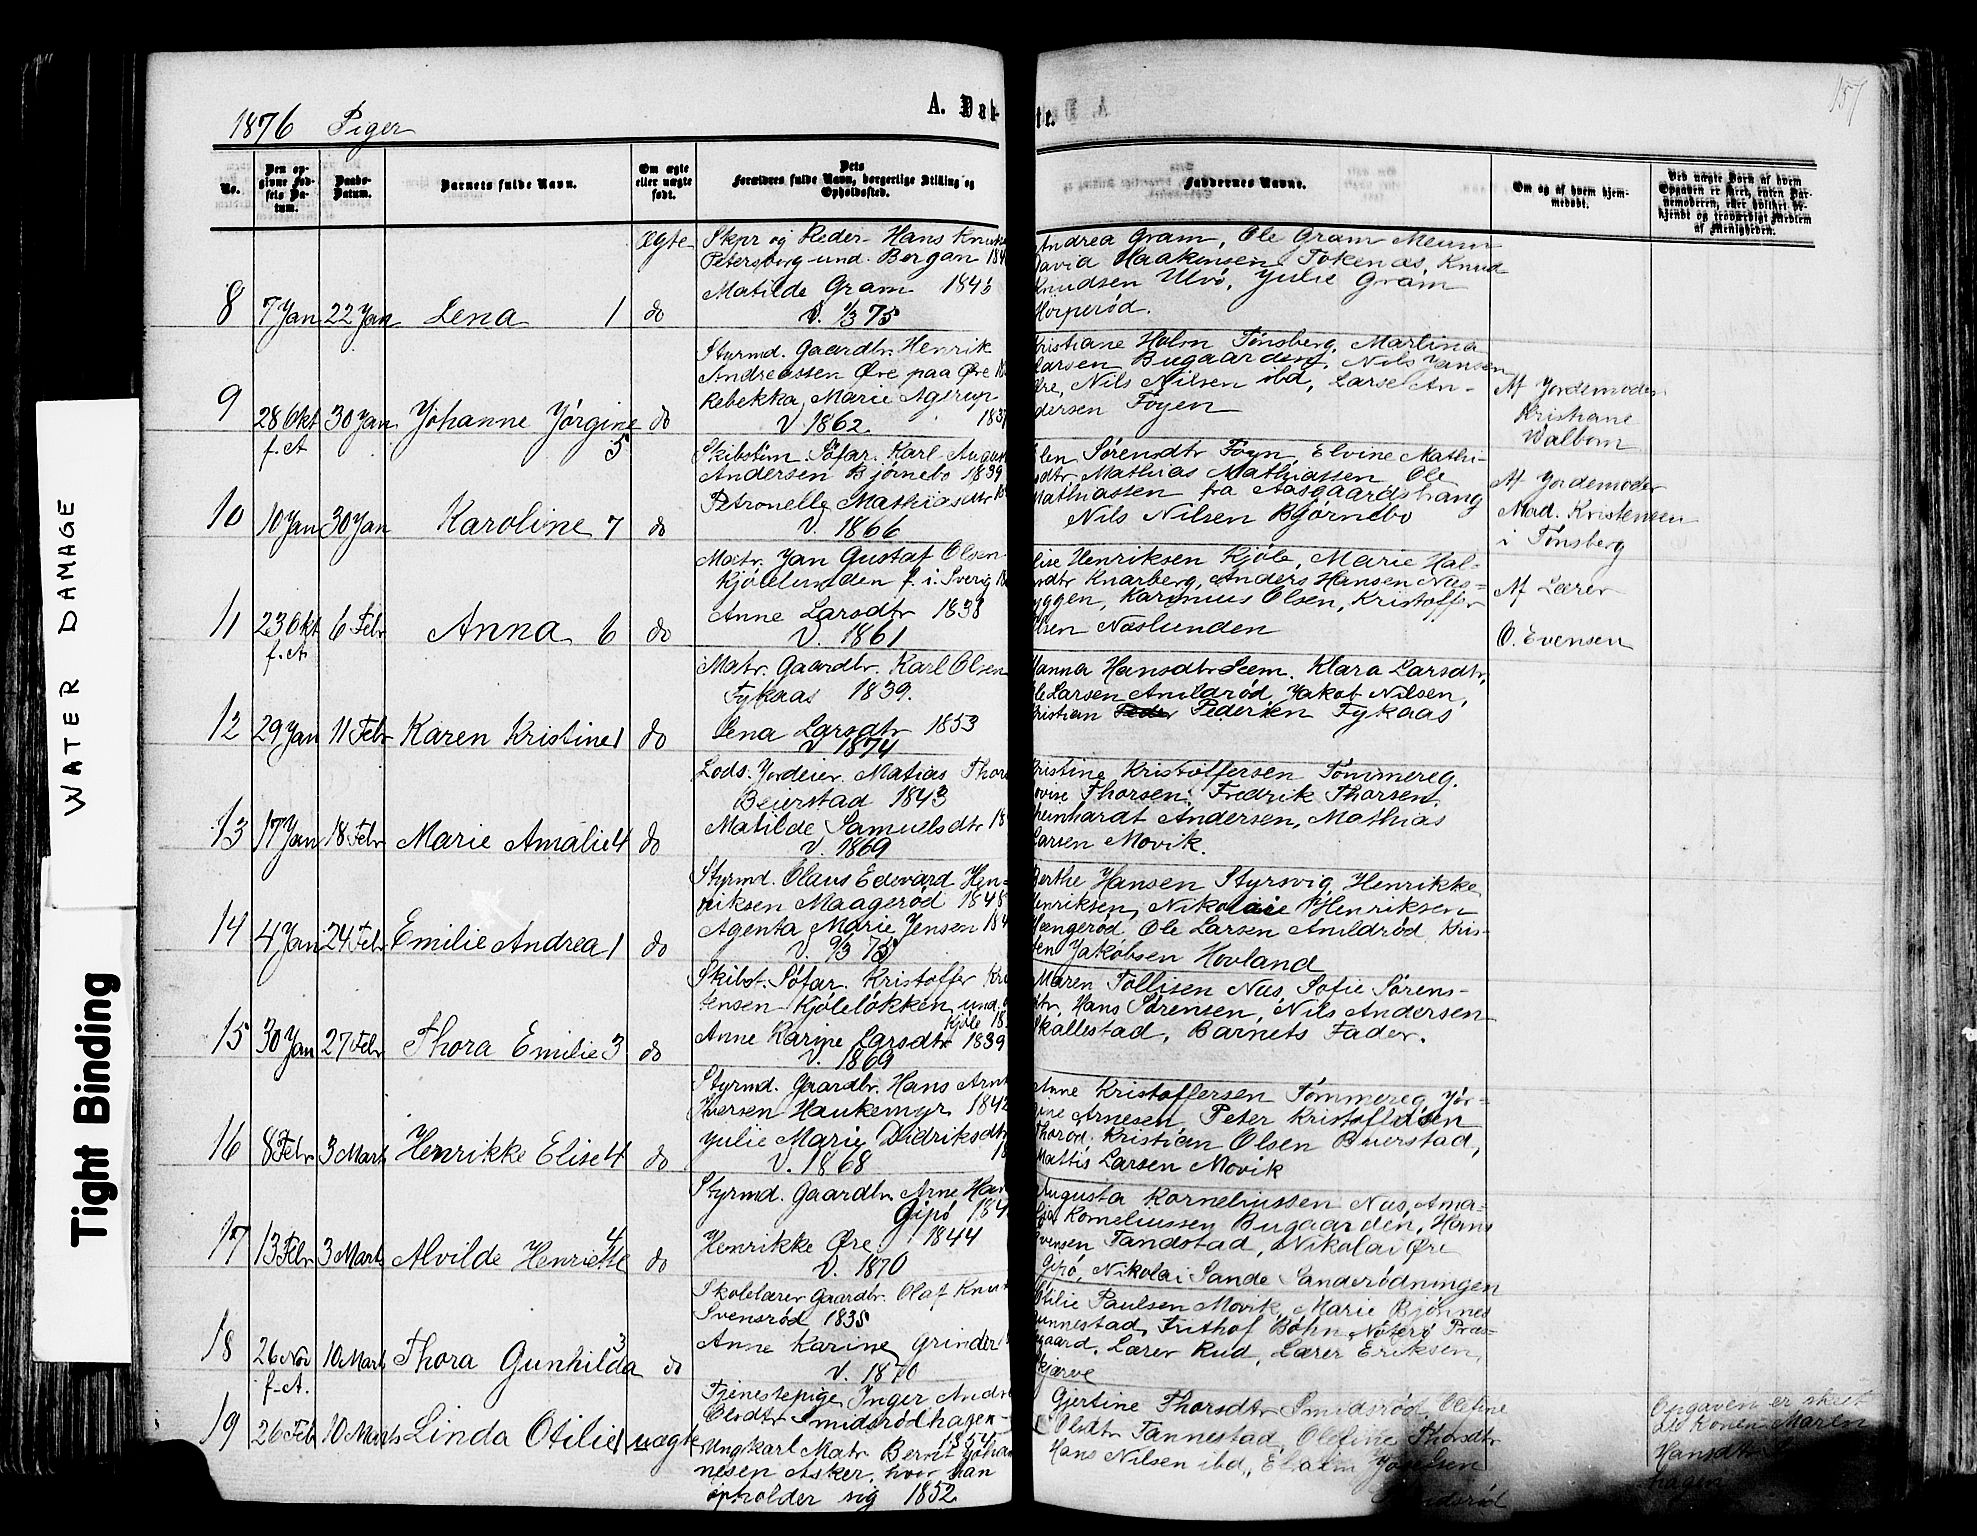 WATER DAMAGE
Tight Binding
1876 Piger
A. Døb-
te.
157
No.
Den op-
givne Fød-
sels Da-
tum.
Daabs-
Datum.
Barnets fulde Navn.
Om ægte
eller uægte
født.
Dets
Forældres fulde Navn, borgerlige Stilling og
Opholdssted.
Faddernes Navne.
Om og af hvem hjem-
medøbt.
Ved uægte Børn af hvem
Opgaven er skeet, enten Bar-
nemoderen, eller hvilket be-
kjendt og troværdigt Medlem
af Menigheden.
8 7 Jan 22 Jan Lena 1 do
ægte
Skpr og Reder Hans Knuts
Petersborg und. Bergan 184
Matilde Gram 1846
V. 1/3 75
Andrea Gram, Ole Gram
David Haakensen Tokenæs, Knud
Knudsen Ulvø, Julie Gram
Horperød.
9 28 Okt 30 Jan Johanne Jørgine do
f. A. 5
Styrmd. Gaardbr. Henrik
Andreassen Øre paa Øre
Rebekka Marie Agerup
V 1862 183
Kristiane Holm Tønsberg, Martina
Larsen Bugaarden, Nils Jansen
Øre, Nils Nilsen ibd, Larse An-
dersen Føyen
Af Jordemoder
Kristiane
Walbom
10 10 Jan 30 Jan Karoline 7 do
Skibstøm. Søfar. Karl August
Andersen Bjørnebo 1839
Petronelle Mathiasdtr
V. 1866
Elen Sørensdtr Føyn, Elvine Mathi-
sdtr, Mathias Mathiassen Ole
Mathiassen fra Aasgaardstrang
Nils Nilsen Bjørnebo
Af Jordemoder
Mad. Kristensen
i Tønsberg
11 23 Okt 6 Febr Anna 6 do
f. A.
Matr. Jan Gustaf Olsen
Kjølelunden f. i. Sverig
Anne Larsdtr 1838
V. 1861
Elise Henriksen Kjøle, Marie Hal-
vdtr Knarberg, Anders Hansen Næs-
byggen, Karinius Olsen, Kristoffer
Olsen Næslunden
Af Lærer
O. Evensen
12 29 Jan 11 Febr Karen Kristine 1 do
Matr. Gaardbr. Karl Olsen
Tykaas 1839.
Lena Larsdtr 1853
V 1874
Hanna Hansdtr Seem. Klara Larsdtr,
Ole Larsen Amildrød Jakob Nilsen,
Kristian Pedersen Tykaas
13 17 Jan 18 Febr Marie Amalie 4 do
Lods. Jordeier Matias Thors
Beierstad 1843
Matilde Samuelsdtr 18
V. 1869
Kristine Kristoffersen Tømmereg.
Lovise Thorsen, Fredrik Thorsen,
Reinhardt Andersen, Mathias
Larsen Movik.
14 4 Jan 24 Febr Emilie Andrea 1 do
Styrmd. Olaus Edevard Hen-
riksen Maagerød 1848
Agenta Marie Jensen 184
V. 9/3 75
Berthe Hansen Styrsvig, Henrikke
Henriksen, Nikolaie Henriksen
Mængerød Ole Larsen Amildrød, Kris-
ten Jakobsen Hovland
15 30 Jan 27 Febr Thora Emilie 3 do
Skibst. Søfar. Kristoffer Kris
tensen Kjøleløkken und.
Kjøle 18
Anne Karine Larsdtr 1839
V. 1869
Maren Tollisen Næs Sofie Sørens-
dtr, Hans Sørensen, Nils Andersen
Skallestad, Barnets Fader.
16 8 Febr 3 Marts Henrikke Elise 4 do
Styrmd. Gaardbr. Hans Arnt
Iversen Haukemyr 1842
Julie Marie Didriksdtr
V. 1868 18
Anne Kristoffersen Tømmereg, Jør-
gine Arnesen, Peter Kristoffersen
Thorød, Kristian Olsen Buerstad,
Mattis Larsen Movik
17 13 Febr 3 Marts Alvilde Henriette 4 do
Styrmd. Gaardbr. Arne Han
Gipø 184
Henrikke Øre 1844
V. 1870
Augusta Korneliussen Næs, Ama-
lia Korneliussen Bugaarden, Hans
Svensen Tandstad, Nikolai Øre
Gipø, Nikolai Sande Sanderødningen
18 26 Nov 10 Marts Thora Gunhilda 3 do
f. A.
Skolelærer Gaardbr. Olaf Knut
Svensrød 1835
Anne Karine Grinder
V. 1870
Otilie Paulsen Movik, Marie Bjønnes
Gunnestad, Frithof Bøhn Nøterø Præs-
tegaard, Lærer Rud, Lærer Eriksen,
Skjærve
19 26 Feb 10 Marts Linda Otilie 1 uægte
Tjenestepige Inger Andr
Olsdtr Smidsrødhagen
1854
Ungkarl Matr. Bernt Johan
nesen Asker, hvor han
opholder sig 1852
Gjertine Thorsdtr Smidsrød, Olefine
Olsdtr Tannestad, Olefine Thorsdtr
Hans Nilsen ibd,
Smidsrød
Opgaven er skeet
af Konen Maren
Hansdtr
hagen